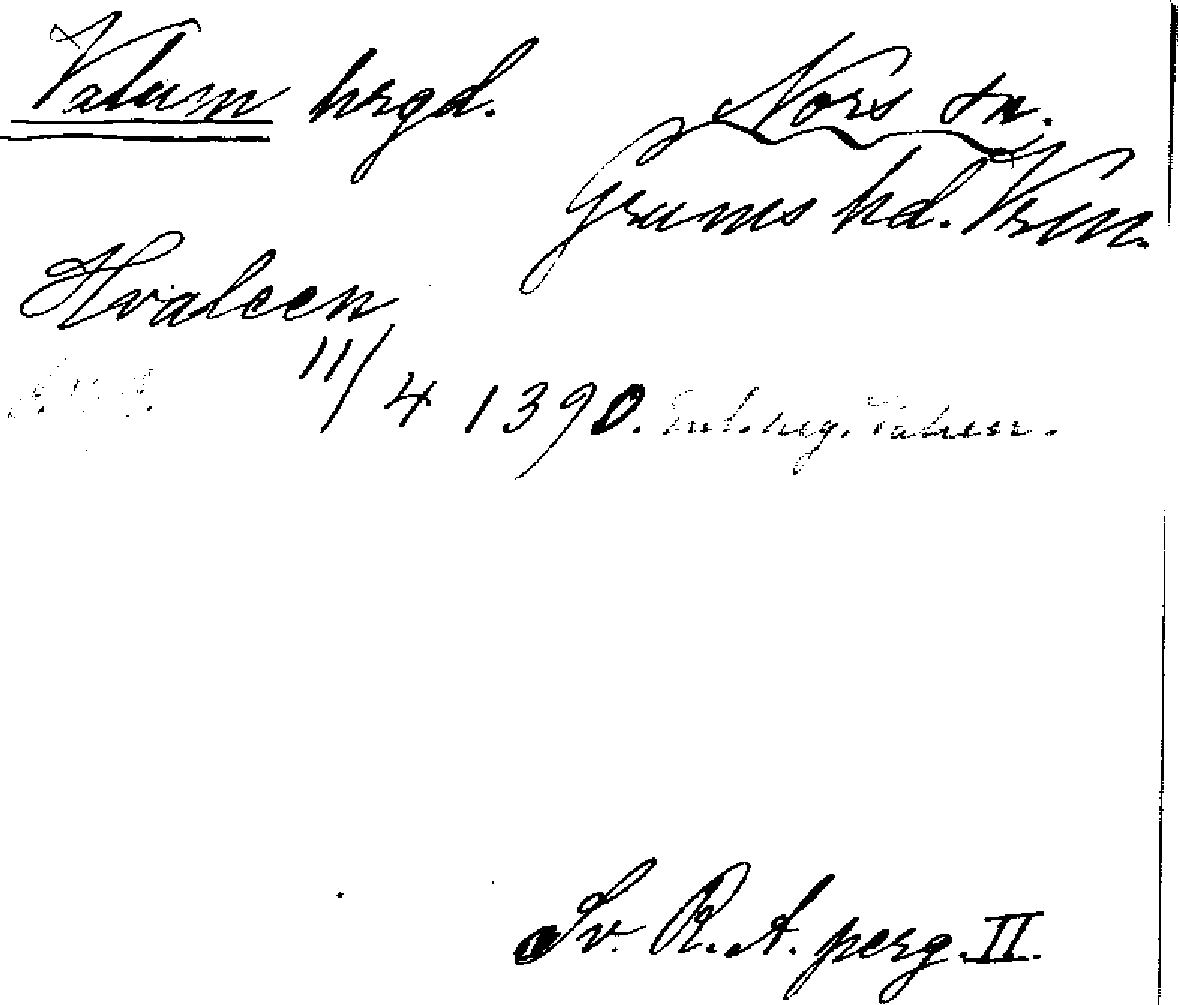 Valum hrgd. Nors sn.
Grums hd. Vrm.
Hvaleen
11/4 1390. Enl. reg.
Sv. R. A. perg. II.